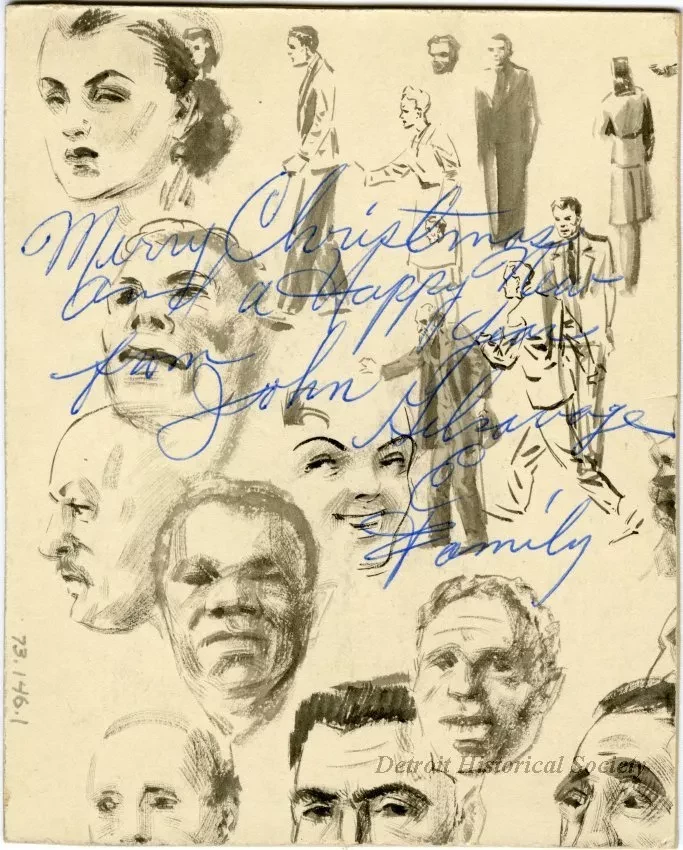 Merry Christmas
and a Happy New
Year
from
John Gelsavage
&
Family
73.146.1
Detroit Historical Society